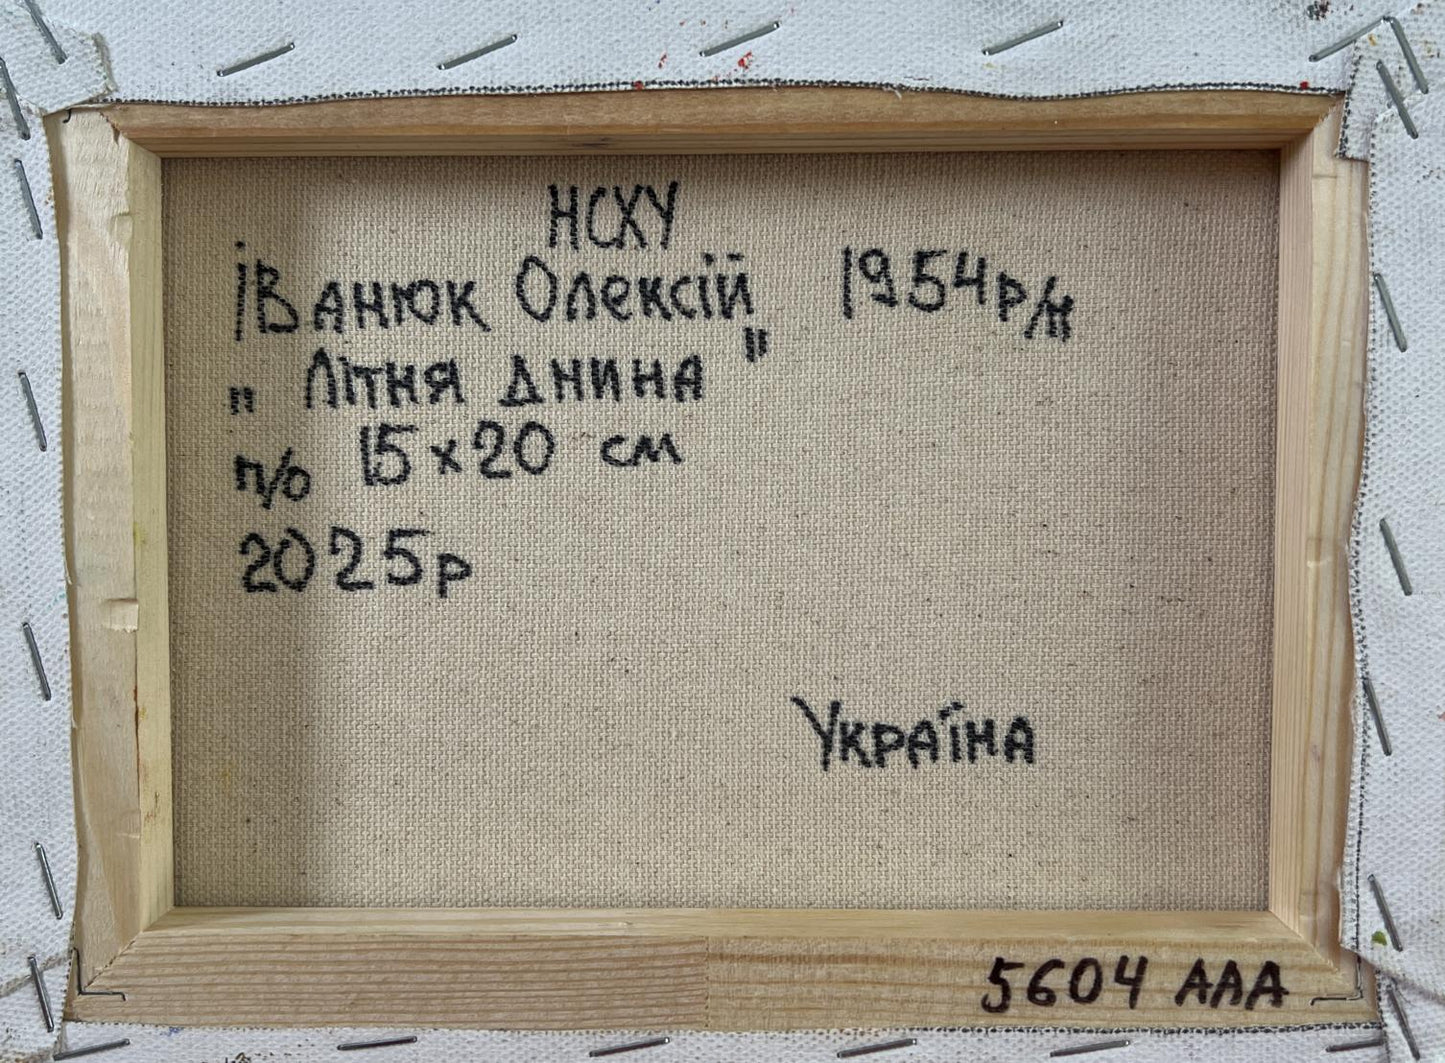 НСХУ
Іванюк Олексій 1954р/н
„ Літня днина "
п/о 15×20 см
2025р
Україна
5604 ААА